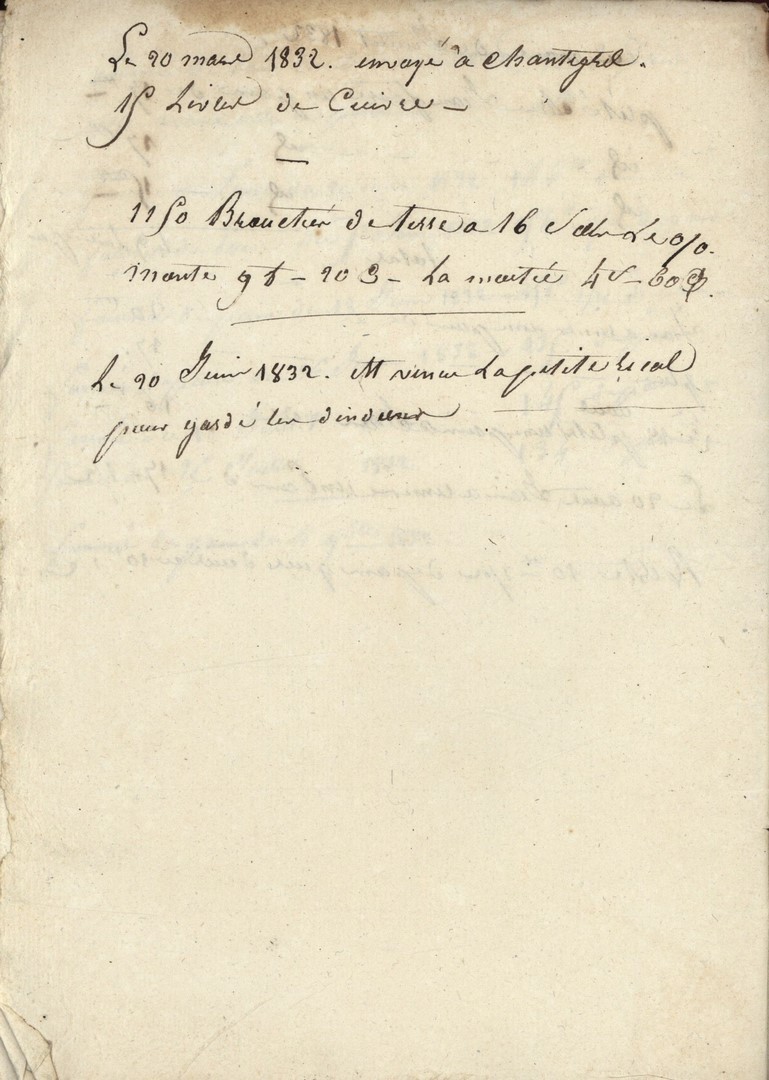 Le 20 mars 1832. envoyé a Chantegrel.
15 Livres de Cuivre —
1150 Brouetées de terre a 16 s Le %.
monte 9 t - 20 c - La moitié 4 - 60 c.
Le 20 Juin 1832. Et venue La petite Rieal
pour gardé les dindons